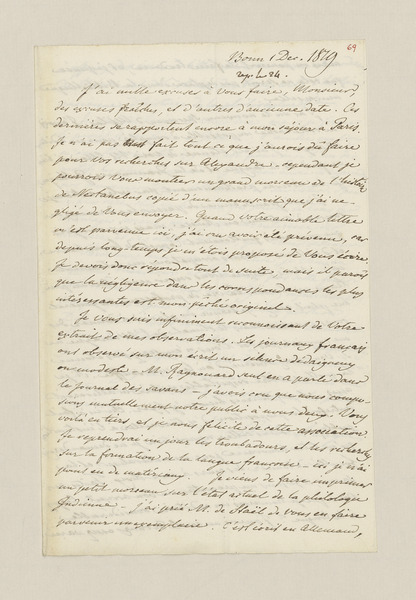 69
Bonn 1 Dec. 1819
rép. le 24.
J'ai mille excuses à vous faire, Monsieur,
des excuses fraîches, et d'autres d'ancienne date. Ces
dernières se rapportent encore à mon séjour à Paris.
Je n'ai pas fait tout ce que j'aurois dû faire
pour Vos recherches sur Alexandre - cependant je
pourrois Vous montrer un grand morceau de l'histoire
de Nectanebus copié d'un manuscrit que j'ai né-
gligé de Vous envoyer. Quand Votre aimable lettre
m'est parvenue ici, j'en avois été prévenu, car
depuis long-temps je m'étois proposé de Vous écrire.
Je devois donc répondre tout de suite, mais il paroît
que la négligence dans les correspondances les plus
intéressantes est mon péché originel.
Je Vous suis infiniment reconnoissant de Votre
extrait de mes observations. Les journaux français
ont observé sur mon écrit un silence dédaigneux
ou modeste - M. Raynouard seul en a parlé dans
le journal des savans - j'avois cru que nous compo-
sions mutuellement notre public à nous deux. Vous
voilà en tiers et je nous félicite de cette association.
Je reprendrai un jour les troubadours, et les recherches
sur la formation de la langue françoise - ici je n'ai
point eu de matériaux. Je viens de faire imprimer
un petit morceau sur l'état actuel de la philologie
Indienne - j'ai prié M. de Staël de vous en faire
parvenir un exemplaire. C'est écrit en Allemand,